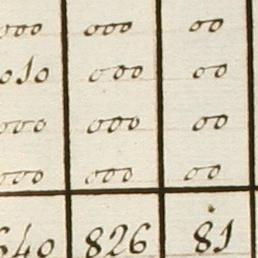 000 000 00
010 000 00
000 000 00
000 000 00
640 826 81